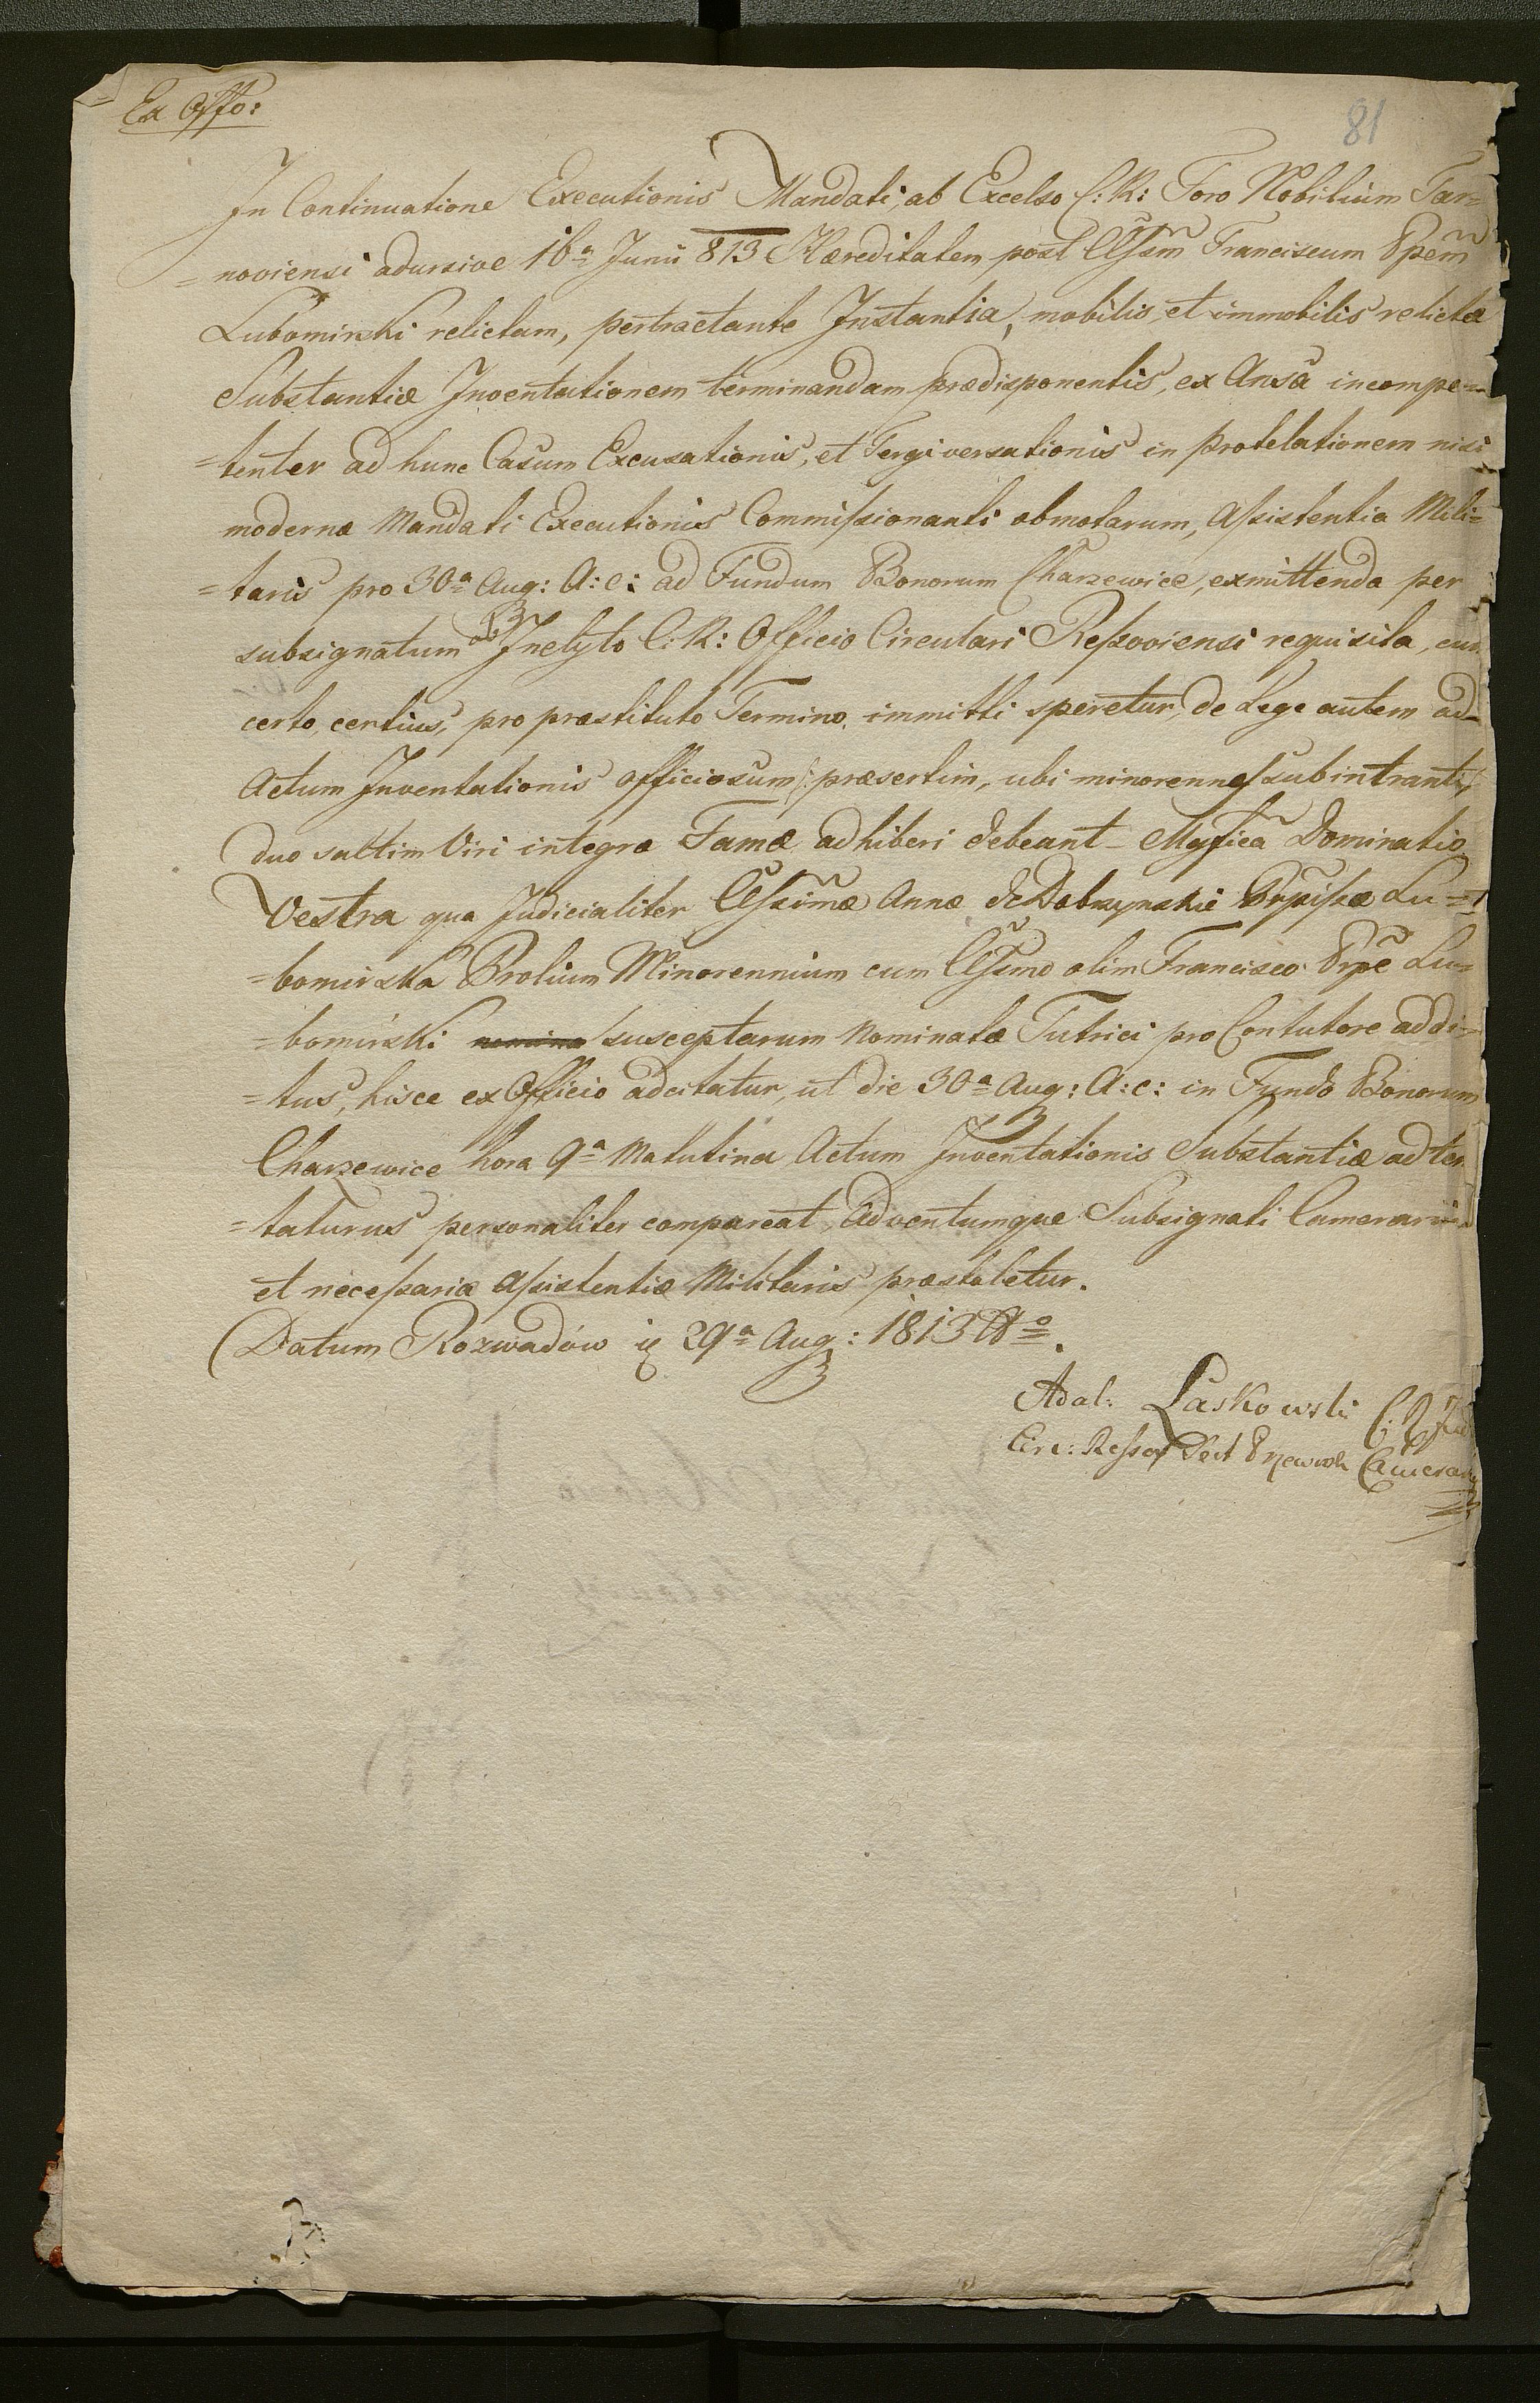 Ex Offo:
81
In Continuatione Executionis Mandati, ab Excelso C: R: Foro Nobilium Tar=
=noviensi adursive 16ª Junii 813 Hæreditatem post Clssm Franciscum Ppem
Lubomirski relictam, pertractante Instantia, mobilis, et immobilis relictæ
Substantiæ Inventationem terminandam prædisponentis, ex Ansa incompe=
=tenter ad hunc Casum Excusationis, et Tergiversationis in protelationem nisi
modernæ Mandati Executionis Commissionanti obmotarum, Assistentia Mili=
=taris pro 30ª Aug: A: c: ad Fundum Bonorum Charzewice, exmittenda per
subsignatum ab Inclyto C: R: Officio Circulari Ressoviensi requisita, cum
certo, certius, pro præstituto Termino immitti speretur, de Lege autem ad
Actum Inventationis officiosum /: præsertim, ubi minorennes subintrant :/
duo saltim Viri integræ Famæ adhiberi debeant – Mgfica Dominatio
Vestra qua Judicialiter Clssimæ Annæ de Dobrzynskie Prpissæ Lu=
=bomirska Prolium Minorennium cum Clssimo olim Francisco Prpe Lu=
=bomirski susceptarum Nominatæ Tutrici pro Contutore addi=
=tus, hisce ex Officio adcitatur, ut die 30ª Aug: A: c: in Fundo Bonorum
Charzewice hora 9ª Matutina Actum Inventationis Substantiæ adten
=taturus personaliter compareat, Adventumque Subsignati Camerarii
et necessariæ Assistentiæ Militaris præstoletur.
Datum Rozwadów 29ª Aug: 1813
Adal: Laskowski C: R:
Circ: Ressov Camerari